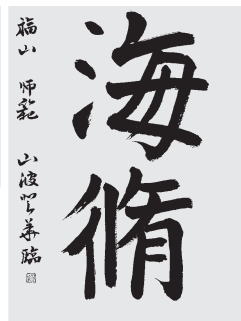 海脩
福山 師範 山波 華臨